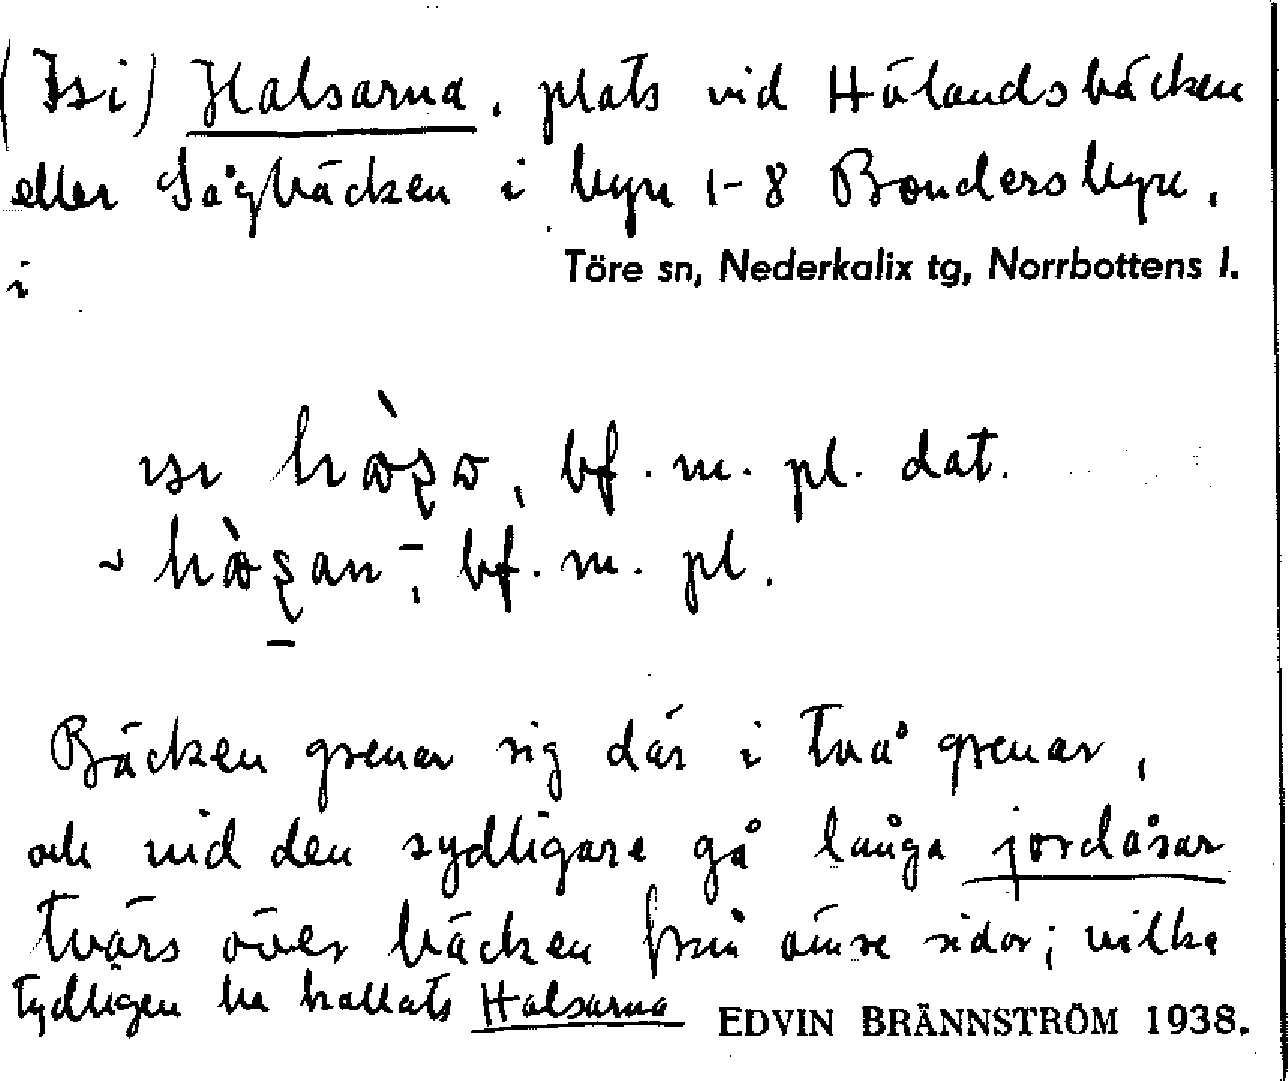 (Isi) Halsarna, plats vid Hölandsbäcken
eller Sågbäcken i byn 1-8 Bondersbyn,
i
Töre sn, Nederkalix tg, Norrbottens l.
bf. m. pl. dat.
bf. m. pl.
Bäcken grenar sig där i två grenar,
och vid den sydligare gå långa jordåsar
tvärs över bäcken från ömse sidor; vilka
tydligen ha kallats Halsarna
EDVIN BRÄNNSTRÖM 1938.